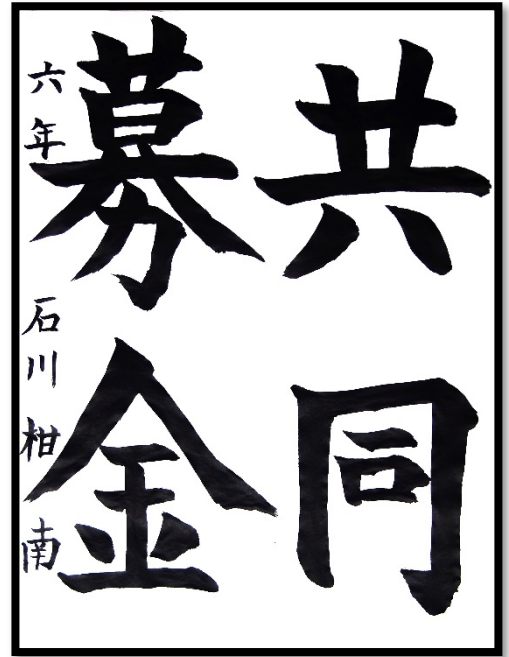 共同
募金
六年 石川柑南